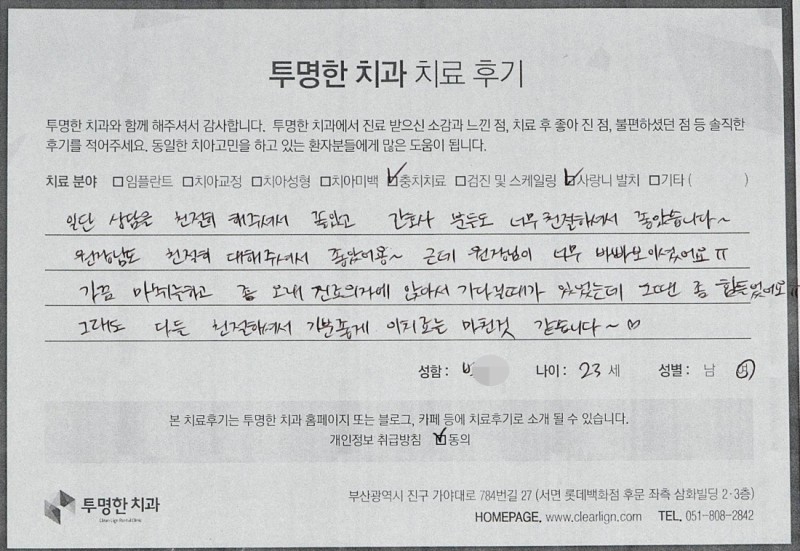 투명한 치과 치료 후기
투명한 치과와 함께 해주셔서 감사합니다. 투명한 치과에서 진료 받으신 소감과 느낀 점, 치료 후 좋아 진 점, 불편하셨던 점 등 솔직한
후기를 적어주세요. 동일한 치아고민을 하고 있는 환자분들에게 많은 도움이 됩니다.
치료 분야 □임플란트 □치아교정 □치아성형 □치아미백 ☑충치치료 □검진 및 스케일링 ☑사랑니 발치 □기타 ( )
일단 상담은 친절히 해주셔서 좋았고 간호사 분들도 너무 친절하셔서 좋았습니다~
원장님도 친절히 대해주셔서 좋았어용~ 근데 원장님이 너무 바빠보이셨어요ㅠ
가끔 마취주하고 좀 오래 진료의자에 앉아서 기다릴때가 있었는데 그땐 좀 힘들었어요ㅠ
그래도 다들 친절하셔서 기분좋게 이치료는 마친것 같습니다~♡
성함: 나이: 23 세 성별: 남 여
본 치료후기는 투명한 치과 홈페이지 또는 블로그, 카페 등에 치료후기로 소개 될 수 있습니다.
개인정보 취급방침 ☑동의
투명한 치과
부산광역시 진구 가야대로 784번길 27 (서면 롯데백화점 후문 좌측 삼화빌딩 2·3층)
HOMEPAGE. www.clearlign.com TEL. 051-808-2842